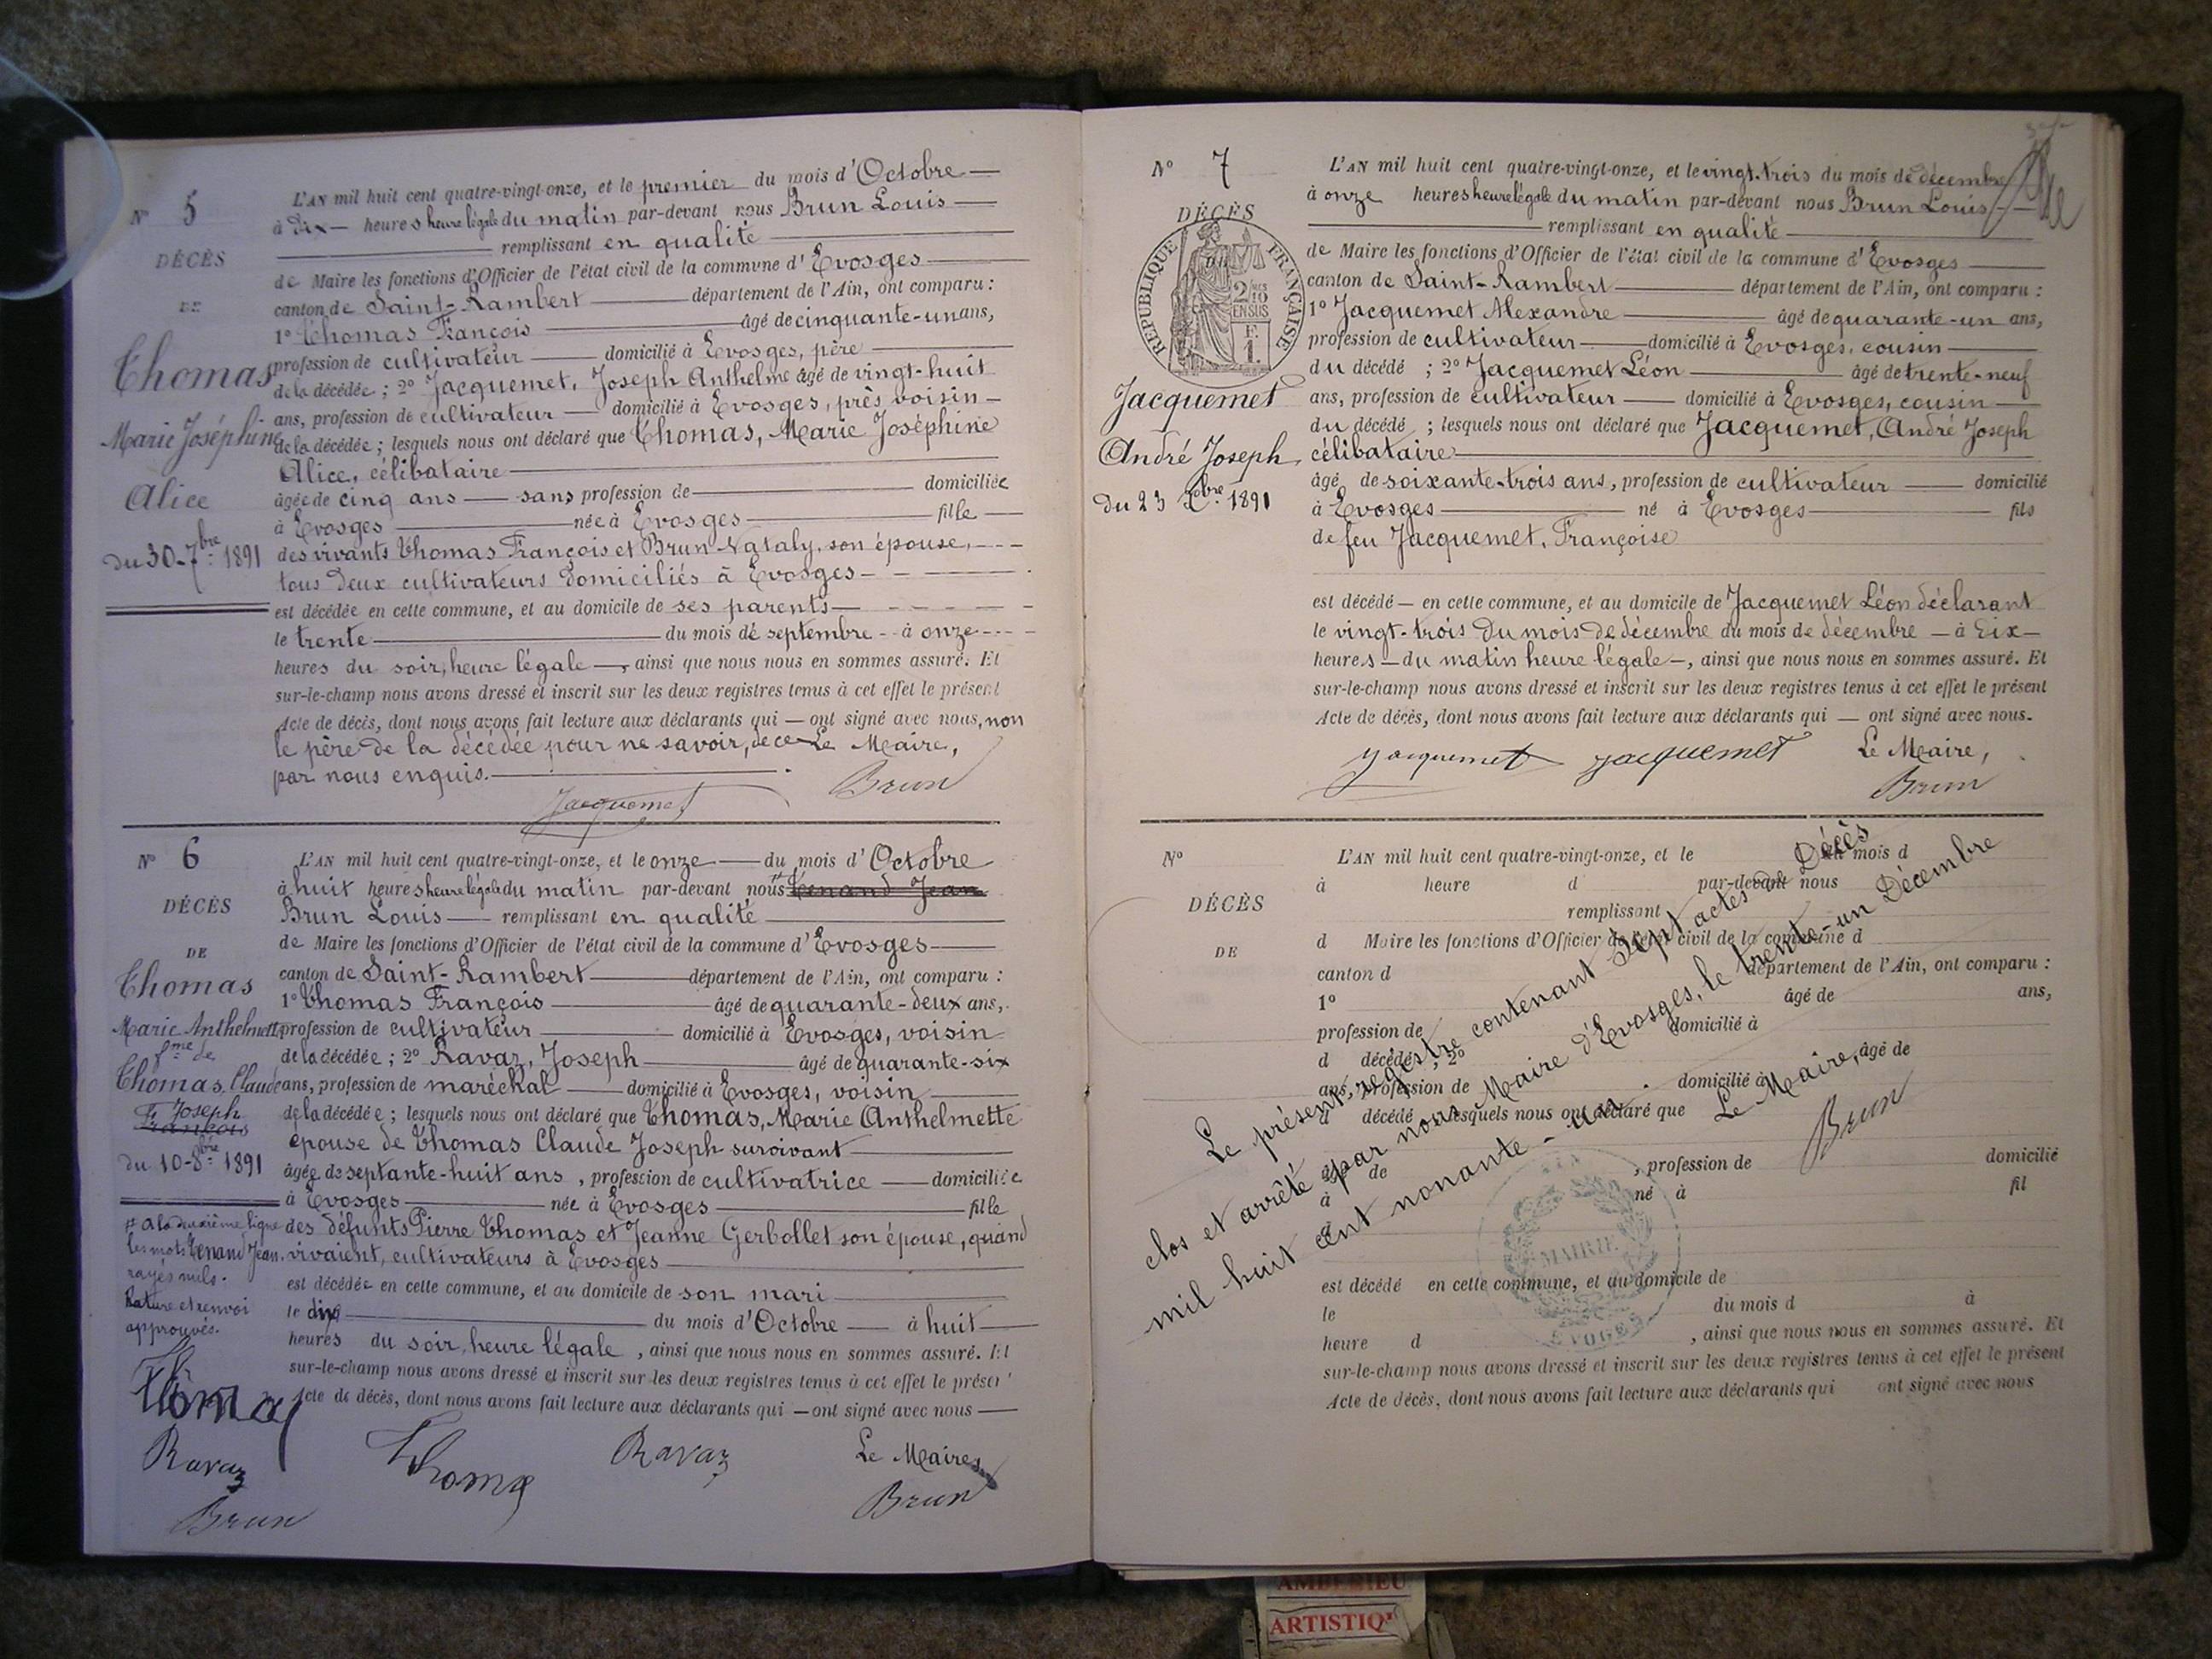 Nº 5
DÉCÈS
DE
Thomas
Marie Joséphine
Alice
du 30 - 7bre 1891
L'AN mil huit cent quatre-vingt-onze, et le premier du mois d'Octobre
à dix heures heure légale du matin par-devant nous Brun Louis
remplissant en qualité
de Maire les fonctions d'Officier de l'état civil de la commune d'Evosges
canton de Saint-Rambert département de l'Ain, ont comparu :
1º Thomas François âgé de cinquante-un ans,
profession de cultivateur domicilié à Evosges, père
de la décédée ; 2º Jacquemet, Joseph Anthelme âgé de vingt-huit
ans, profession de cultivateur domicilié à Evosges, près voisin
de la décédée ; lesquels nous ont déclaré que Thomas, Marie Joséphine
Alice, célibataire
âgée de cinq ans sans profession de domiciliée
à Evosges née à Evosges fille
des vivants Thomas François et Brun Nataly, son épouse,
tous deux cultivateurs domiciliés à Evosges
est décédée en cette commune, et au domicile de ses parents
le trente du mois de septembre à onze
heures du soir, heure légale, ainsi que nous nous en sommes assuré. Et
sur-le-champ nous avons dressé et inscrit sur les deux registres tenus à cet effet le présent
Acte de décès, dont nous avons fait lecture aux déclarants qui ont signé avec nous, non
le père de la décédée pour ne savoir, de ce Le Maire,
par nous enquis.
Jacquemet Brun
Nº 6
DÉCÈS
DE
Thomas
Marie Anthelmette
fme de
Thomas, Claude
Joseph
François
du 10 - 8bre 1891
A la deuxième ligne
les mots Tenand Jean
rayés nuls.
Rature et renvoi
approuvés.
Thomas
Ravaz
Brun
L'AN mil huit cent quatre-vingt-onze, et le onze du mois d'Octobre
à huit heures heure légale du matin par-devant nous Tenand Jean
Brun Louis remplissant en qualité
de Maire les fonctions d'Officier de l'état civil de la commune d'Evosges
canton de Saint-Rambert département de l'Ain, ont comparu :
1º Thomas François âgé de quarante-deux ans,
profession de cultivateur domicilié à Evosges, voisin
de la décédée ; 2º Ravaz, Joseph âgé de quarante-six
ans, profession de maréchal domicilié à Evosges, voisin
de la décédée ; lesquels nous ont déclaré que Thomas, Marie Anthelmette
épouse de Thomas Claude Joseph survivant
âgée de septante-huit ans, profession de cultivatrice domiciliée
à Evosges née à Evosges fille
des défunts Pierre Thomas et Jeanne Gerbollet son épouse, quand
vivaient, cultivateurs à Evosges
est décédée en cette commune, et au domicile de son mari
le dix du mois d'Octobre à huit
heures du soir, heure légale, ainsi que nous nous en sommes assuré. Et
sur-le-champ nous avons dressé et inscrit sur les deux registres tenus à cet effet le présent
Acte de décès, dont nous avons fait lecture aux déclarants qui ont signé avec nous
Thomas Ravaz Le Maire,
Brun
Nº 7
DÉCÈS
RÉPUBLIQUE FRANÇAISE
2/10
EN SUS
F.
1.
Jacquemet
André Joseph
du 23 Xbre 1891
L'AN mil huit cent quatre-vingt-onze, et le vingt-trois du mois de décembre
à onze heures heure légale du matin par-devant nous Brun Louis
remplissant en qualité
de Maire les fonctions d'Officier de l'état civil de la commune d'Evosges
canton de Saint-Rambert département de l'Ain, ont comparu :
1º Jacquemet Alexandre âgé de quarante-un ans,
profession de cultivateur domicilié à Evosges, cousin
du décédé ; 2º Jacquemet Léon âgé de trente-neuf
ans, profession de cultivateur domicilié à Evosges, cousin
du décédé ; lesquels nous ont déclaré que Jacquemet, André Joseph
célibataire
âgé de soixante-trois ans, profession de cultivateur domicilié
à Evosges né à Evosges fils
de feu Jacquemet, Françoise
est décédé en cette commune, et au domicile de Jacquemet Léon déclarant
le vingt-trois du mois de décembre du mois de décembre à six
heures du matin heure légale, ainsi que nous nous en sommes assuré. Et
sur-le-champ nous avons dressé et inscrit sur les deux registres tenus à cet effet le présent
Acte de décès, dont nous avons fait lecture aux déclarants qui ont signé avec nous.
Jacquemet Jacquemet Le Maire,
Brun
Nº
DÉCÈS
DE
L'AN mil huit cent quatre-vingt-onze, et le du mois d
à heure d par-devant nous
remplissant
d Maire les fonctions d'Officier de l'état civil de la commune d
canton d département de l'Ain, ont comparu :
1º âgé de ans,
profession de domicilié à
d décédé ; 2º âgé de
ans, profession de domicilié à
d décédé ; lesquels nous ont déclaré que
âgé de , profession de domicilié
à né à fil
d
est décédé en cette commune, et au domicile de
le du mois d à
heure d , ainsi que nous nous en sommes assuré. Et
sur-le-champ nous avons dressé et inscrit sur les deux registres tenus à cet effet le présent
Acte de décès, dont nous avons fait lecture aux déclarants qui ont signé avec nous
Le présent registre contenant sept actes de Décès
clos et arrêté par nous Maire d'Evosges, le trente-un Décembre
mil huit cent nonante-un.
Le Maire,
Brun
MAIRIE
EVOGES
AMBERIEU
ARTISTIQ